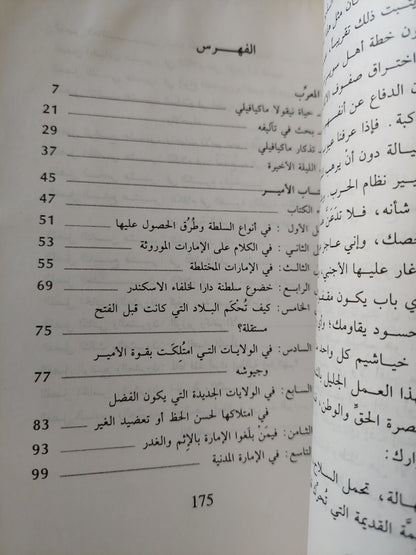 الفهرس
المعرِّب 7
ـ حياة نيقولا ماكيافيلي 21
ـ بحث في تآليفه 29
ـ تذكار ماكيافيلي 37
ـ الليلة الأخيرة
45
ـاب الأمير
47
الكتاب
ـل الأول : في أنواع السلطة وطُرُق الحصول عليها 51
الثاني : في الكلام على الإمارات الموروثة 53
الثالث : في الإمارات المختلطة 55
الرابع : خضوع سلطنة دارا لخلفاء الاسكندر 69
الخامس : كيف تُحكَم البلاد التي كانت قبل الفتح
مستقلة؟ 75
السادس : في الولايات التي امتُلِكَت بقوة الأمير
وجيوشه 77
السابع : في الولايات الجديدة التي يكون الفضل
في امتلاكها لحسن الحظ أو تعضيد الغير 83
الثامن : فيمَنْ بلَغوا الإمارة بالإثم والغدر 93
التاسع : في الإمارة المدنية 99
175
يثبت ذلك تقريباً
ون خطة أهل سويـ
اختراق صفوف الأ
ن الدفاع عن أنفـ
كبة . فإذا عرفنا عيو
يالة دون أن يرهبـ
ـير نظام الحرب
شأنه ، فلا تَدَعَنَّ
ـصك ، وإني عاجز
ـغار عليها الأجنبي
ي باب يكون مقفـ
حسود يقاومك؛ وأي
خياشيم كل واحد
هذا العمل الجليل بذ
ـصرة الحقِّ والوطن،
ارك :
ـهالة ، تحمل السلاح
ـمَّة القديمة التي تُحرِّك